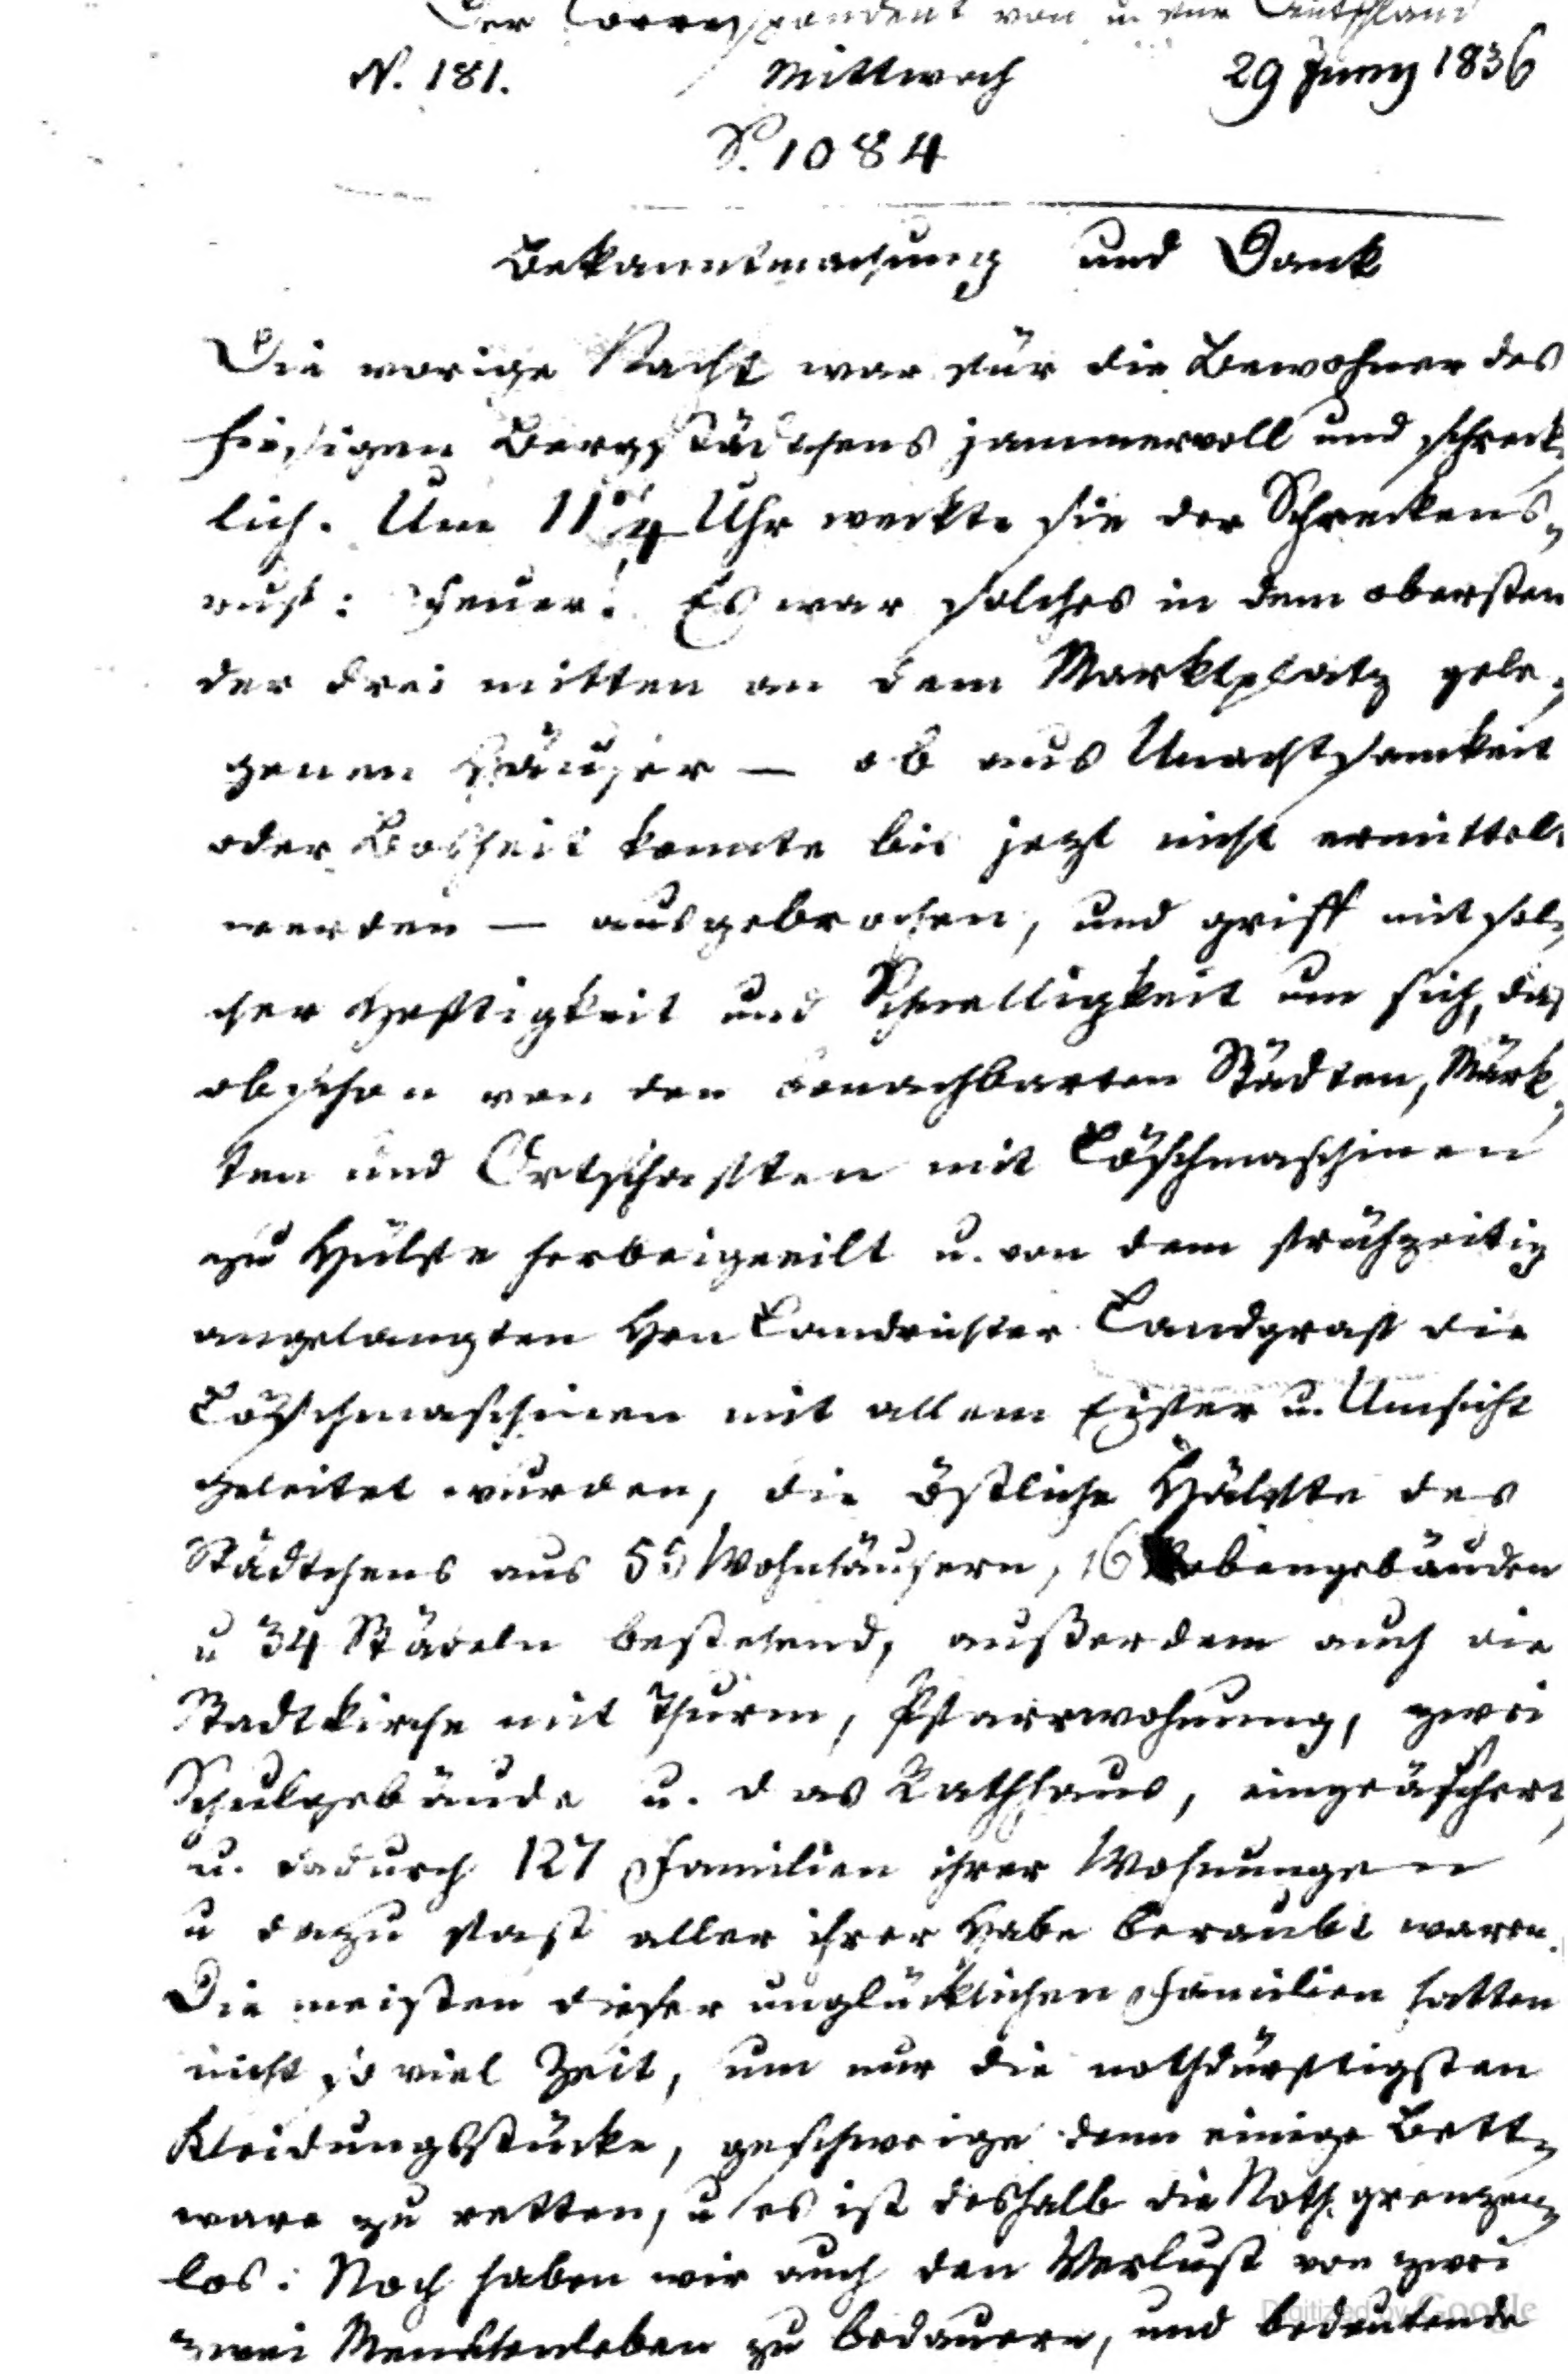 Der Correspondent von u. für Deutschland
N. 181. Mittwoch 29 Juny 1836
S. 1084
Bekanntmachung und Dank
Die vorige Nacht war für die Bewohner des
hiesigen Bergstädtchens jammervoll und schreck-
lich. Um 11 3/4 Uhr weckte sie der Schreckens-
ruf: Feuer! Es war solches in dem obersten
der drei mitten an dem Marktplatz gele-
genen Häuser — ob aus Unachtsamkeit
oder Bosheit konnte bis jezt nicht ermittelt
werden — ausgebrochen, und griff mit sol-
cher Heftigkeit und Schnelligkeit um sich, daß
obschon von den benachbarten Städten, Märk-
ten und Ortschaften mit Löschmaschinen
zu Hülfe herbeigeeilt u. von dem frühzeitig
angelangten Hrn Landrichter Landgraf die
Löschmaschinen mit allem Eifer u. Umsicht
geleitet wurden, die östliche Hälfte des
Städtchens aus 55 Wohnhäusern, 16 Nebengebäuden
u 34 Städeln bestehend, außerdem auch die
Stadtkirche mit Thurm, Pfarrwohnung, zwei
Schulgebäude u. das Rathhaus, eingeäschert,
u. dadurch 127 Familien ihrer Wohnungen
u dazu fast aller ihrer Habe beraubt waren.
Die meisten dieser unglücklichen Familien hatten
nicht so viel Zeit, um nur die nothdürftigsten
Kleidungsstücke, geschweige denn einige Bett-
ware zu retten, u es ist deshalb die Noth grenzen-
los. Noch haben wir auch den Verlust von zwei
zwei Menschenleben zu bedauern, und bedeutende
Digitized by Google